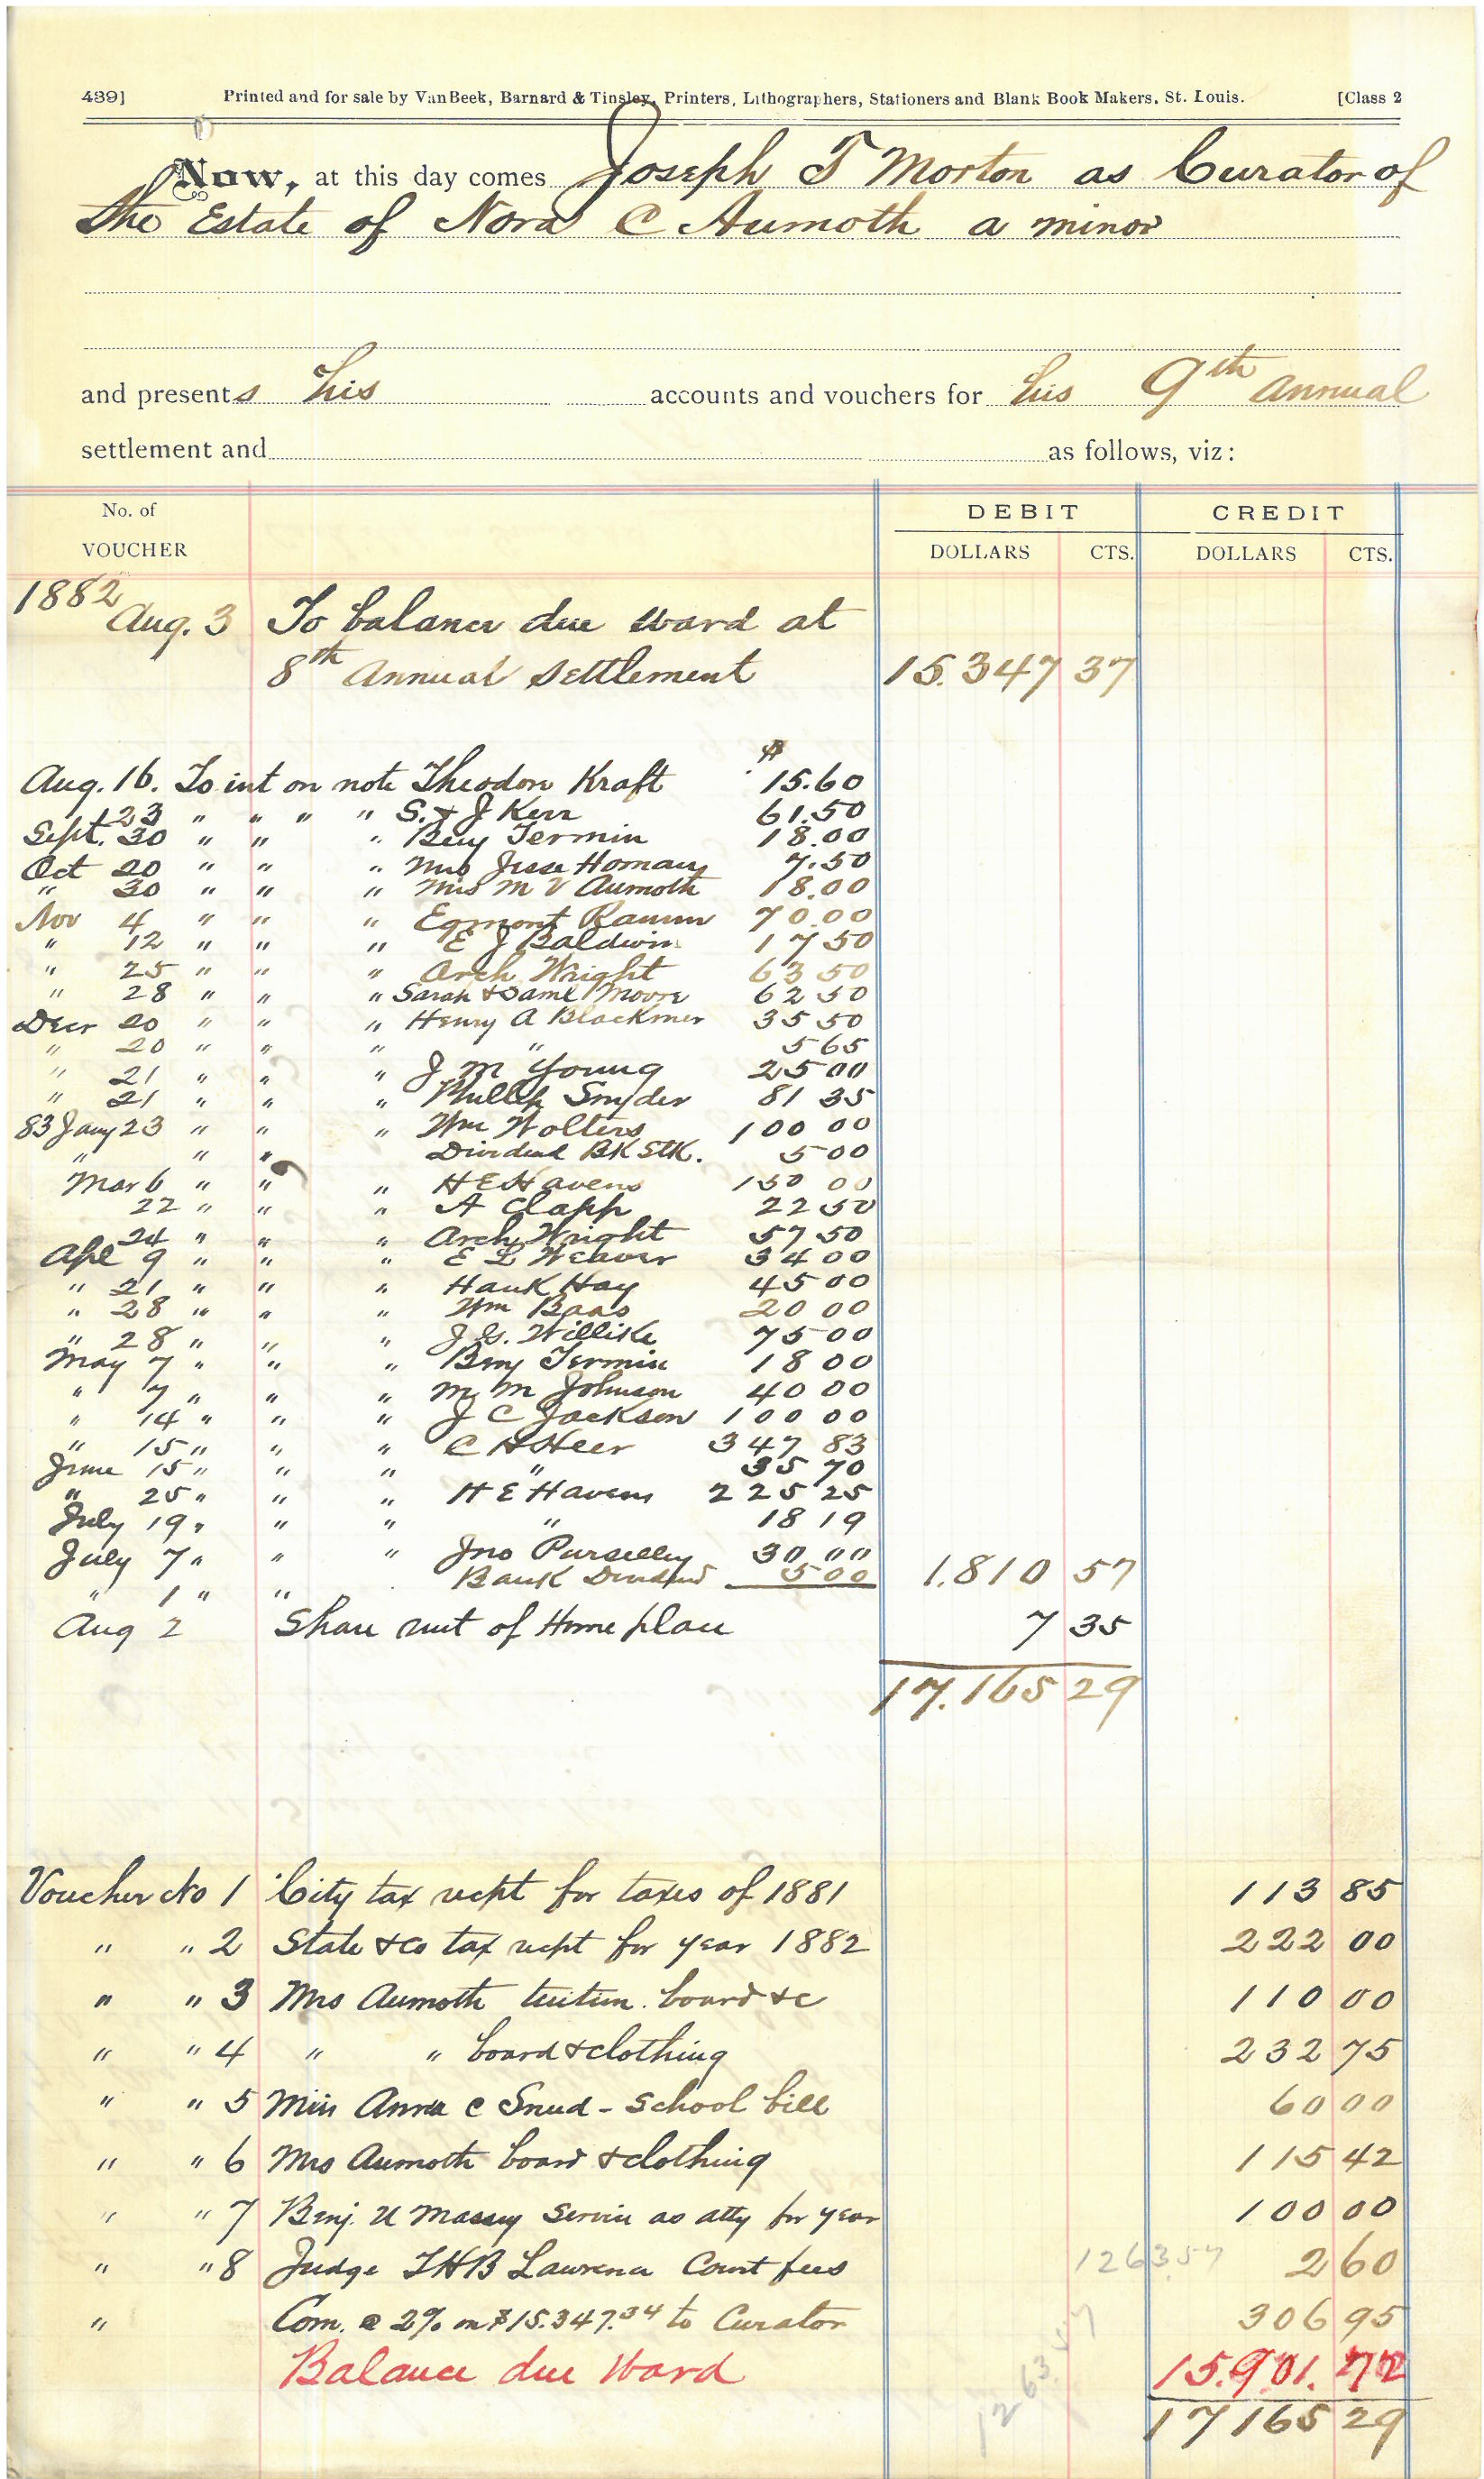 439] Printed and for sale by VanBeek, Barnard & Tinsley, Printers, Lithographers, Stationers and Blank Book Makers, St. Louis. [Class 2
Now, at this day comes Joseph T Morton as Curator of
the Estate of Nora C Aumoth a minor
and presents his accounts and vouchers for his 9th annual
settlement and as follows, viz:
No. of VOUCHER DEBIT CREDIT
DOLLARS CTS. DOLLARS CTS.
1882
Aug. 3 To balance due ward at
8th Annual Settlement 15.347 37
$
Aug. 16. To int on note Theodore Kraft 15.60
" 23 " " " " S. & J Kerr 61.50
Sept. 30 " " " Benj Termin 18.00
Oct 20 " " " Mrs Jesse Homan 7.50
" 30 " " " Mrs M V Aumoth 18.00
Nov 4 " " " Egmont 70.00
" 12 " " " E J Baldwin 17 50
" 25 " " " Arch Wright 63 50
" 28 " " " Sarah & Saml Moore 62 50
Decr 20 " " " Henry A Blackmer 35 50
" 20 " " " " 5 65
" 21 " " " J M Young 25 00
" 21 " " " Phillip Snyder 81 35
83 Jany 23 " " " Wm Wolters 100 00
" " " Dividend BK Stk. 5 00
Mar 6 " " " H E Havens 150 00
22 " " " A Clapp 22 50
24 " " " Arch Wright 57 50
Apl 9 " " " E L Weaver 34 00
" 21 " " " Hauk Hay 45 00
" 28 " " " Wm Baas 20 00
" 28 " " " J G. Willike 75 00
May 7 " " " Benj Termin 18 00
" 7 " " " M M Johnson 40 00
" 14 " " " J C Jackson 100 00
" 15 " " " C H Heer 347 83
June 15 " " " " 35 70
" 25 " " " H E Havens 225 25
July 19 " " " " 18 19
July 7 " " " Jno Purselley 30 00 1.810 57
" 1 " " Bank Dividend 5 00
Aug 2 Share rent of Home place 7 35
17.165 29
Voucher No 1 City tax recpt for taxes of 1881 113 85
" " 2 State & Co tax recpt for year 1882 222 00
" " 3 Mrs Aumoth tuition. board &c 110 00
" " 4 " " board & clothing 232 75
" " 5 Miss Anna C Snud - School bill 60 00
" " 6 Mrs Aumoth board & clothing 115 42
" " 7 Benj. U Massey Service as atty for year 100 00
" " 8 Judge T H B Lawrence Court fees 1263.57 2 60
" Com. @ 2% on $15.347.34 to Curator 306 95
Balance due Ward 15.901. 72
1263.57
17165 29